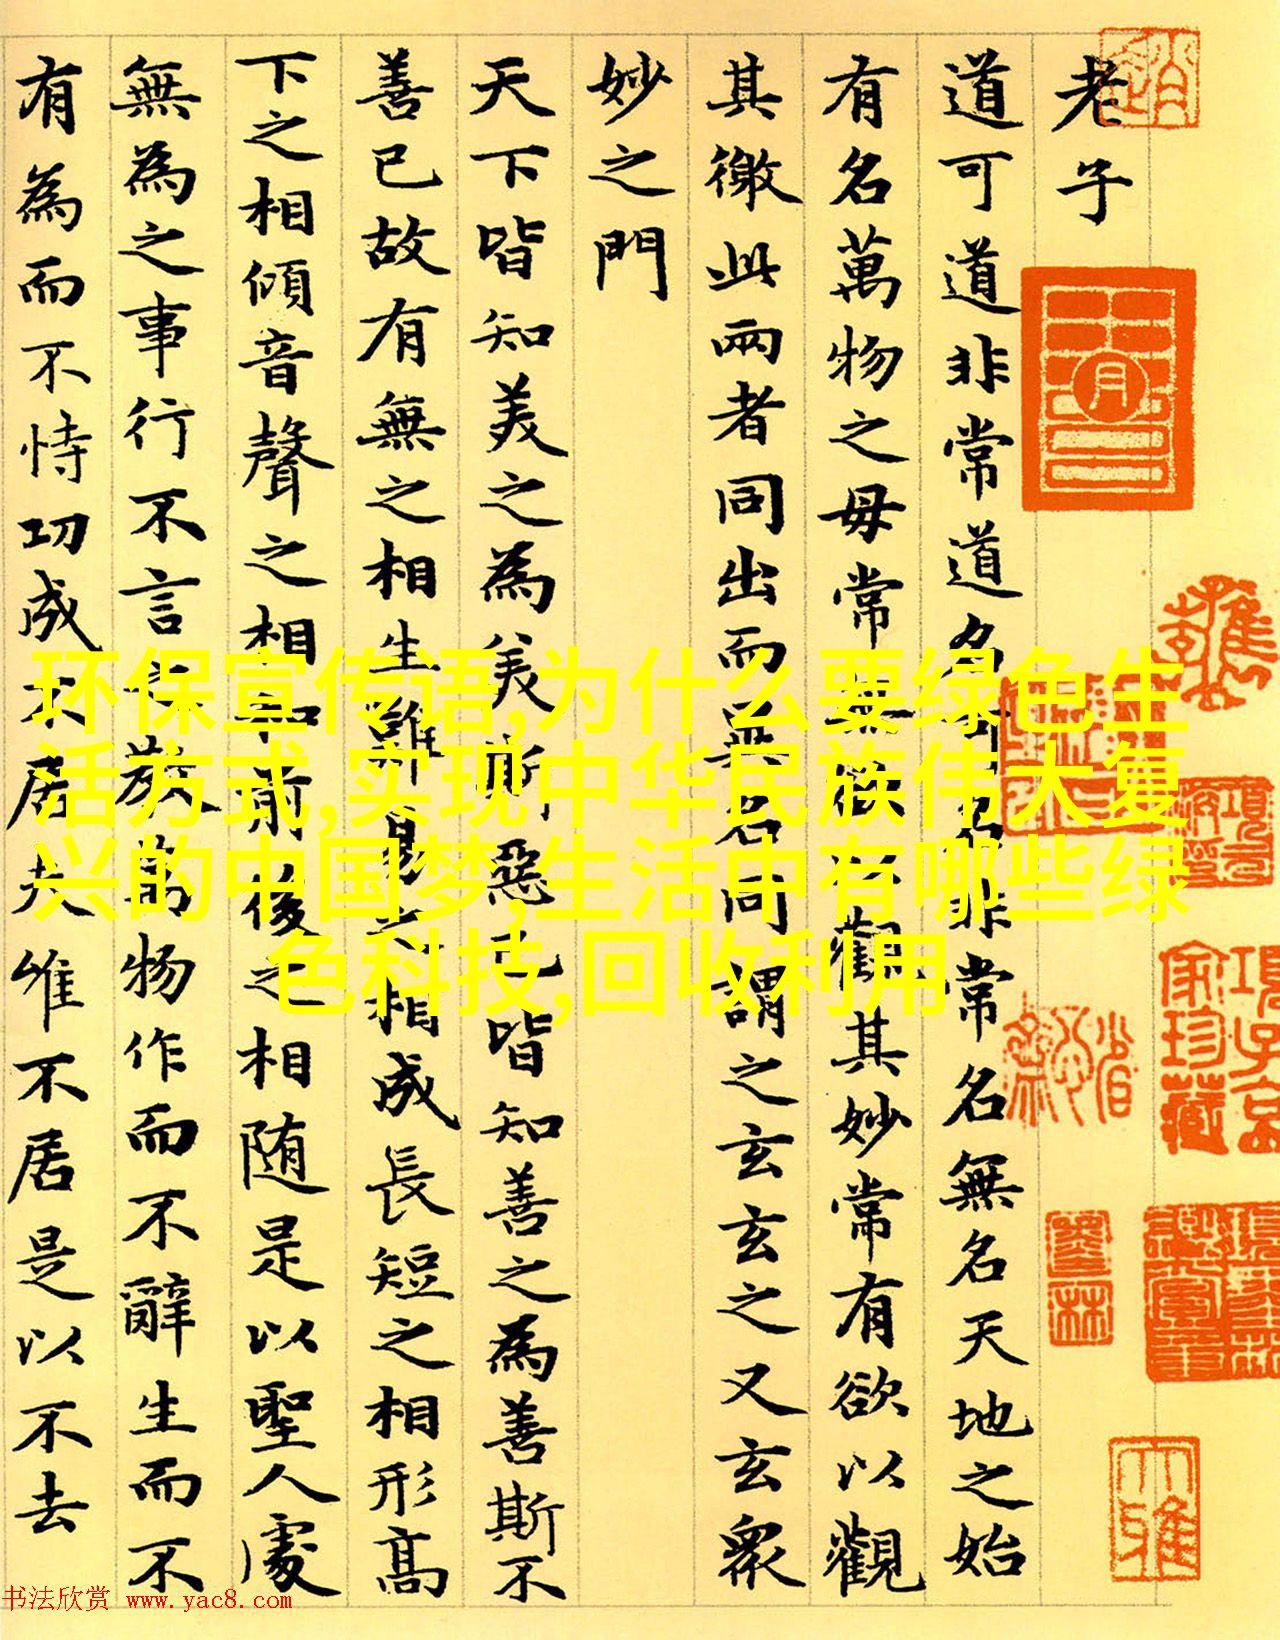 老子
道可道非常道名可名非常名無名天地之始
有名萬物之母常無欲以觀其妙常有欲以觀
其徼此兩者同出而異名同謂之玄玄之又玄衆
妙之門
天下皆知美之為美斯惡已皆知善之為善斯不
善已故有無之相生難易之相成長短之相形髙
下之相傾音聲之相和前後之相随是以聖人處
無為之事行不言之教萬物作而不辭生而不
有為而不恃功成不居夫唯不居是以不去
环保宣传语,为什么要绿色生
活方式,实现中华民族伟大复
兴的中国梦,生活中有哪些绿
色科技,回收利用
項子京
家珍藏
大雅
书法欣赏 www.yac8.com